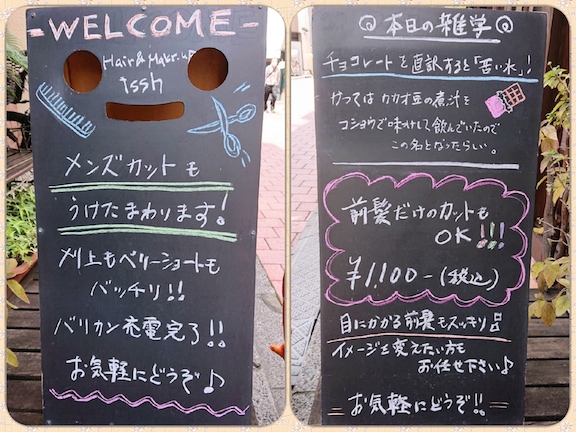 -WELCOME-
Hair & Make-up
issh
メンズカットも
うけたまわります!
刈上もベリーショートも
バッチリ!!
バリカン充電完了!!
お気軽にどうぞ♪
◎本日の雑学◎
チョコレートを直訳すると「苦い水」!
かつてはカカオ豆の煮汁を
コショウで味付けして飲んでいたので
この名となったらしい。
前髪だけのカットも
OK!!!
¥1,100-(税込)
目にかかる前髪もスッキリ!!
イメージを変えたい方も
お任せ下さい♪
=お気軽にどうぞ!!=